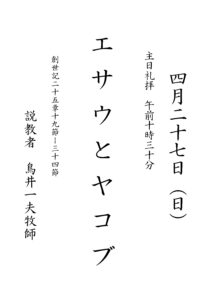 四月二十七日（日）
主日礼拝　午前十時三十分
エサウとヤコブ
創世記二十五章十九節－三十四節
説教者　鳥井一夫牧師